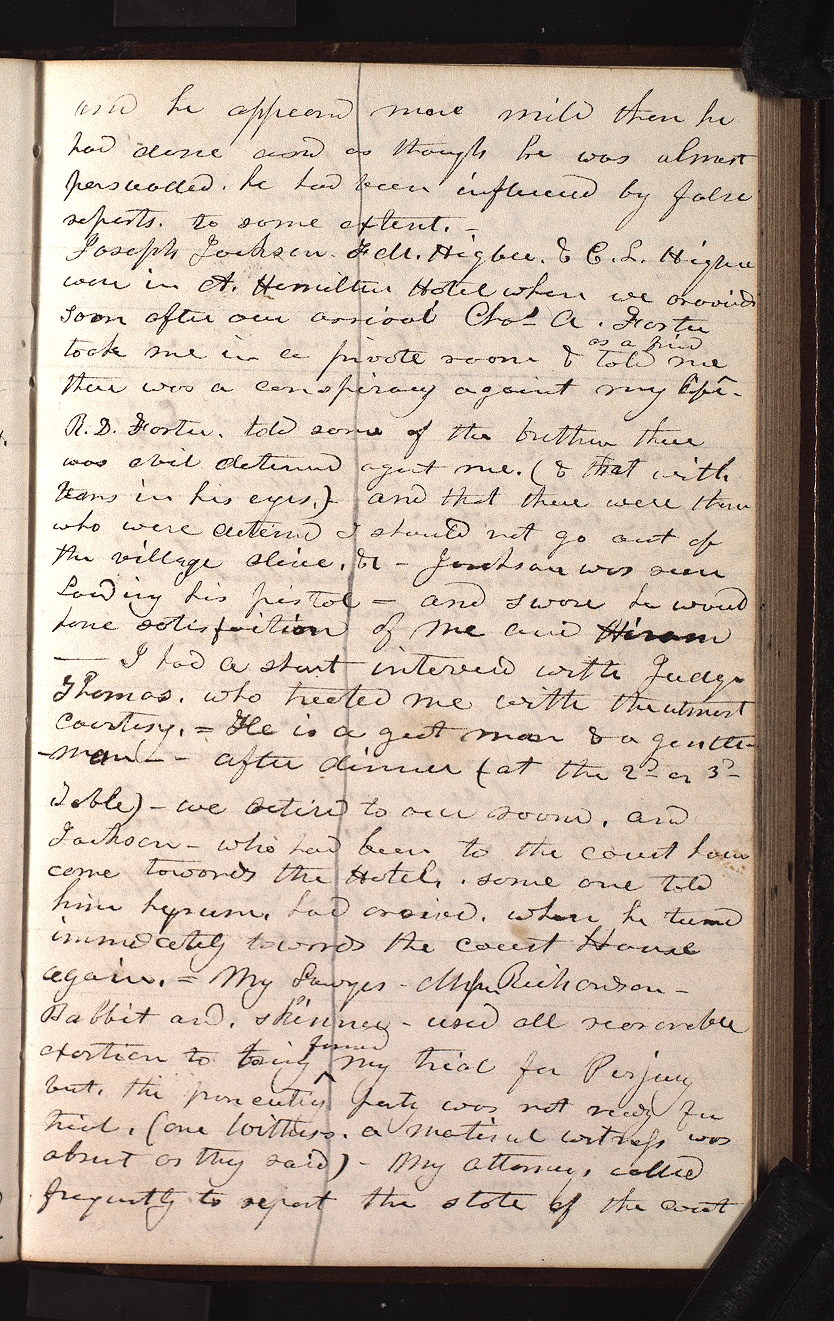 and he appeard more mild then he
had done and as though he was almost
persuaded. he had been influenced by false
reports. to some extent. —
Joseph Jackson. F. M. Higbee. & C. L. Higbee
were in A. Hamilton Hotel when we arrovied
soon after our arrival Chas A. Foster
took me in a private room & told me
as a friend
there was a conspiracy against my life.
R. D. Foster. told some of the brethren there
was evil determnd agast me. (& that with
tears in his eyes.) and that there were those
who were determnd I should not go out of
the village alive. &c — Jackson was seen
Loading his pistol — and swore he would
have satisfaction of me and Hiram
— I had a short interveiw with Judge
Thomas. who treeted me with the utmost
courtesy. = He is a great man & a gentle-
-man — - after dinner (at the 2d or 3d-
Table) — we retired to our room. and
Jackson — who had been to the court house
came towards the Hotel. . some one told
him hyrum. had arrived. when he turned
immediately towards the court House
again. = My Lawyers - Messrs Richardson -
Babbit and. skinner - used all reasonable
exertion to bring my trial for Perjury
forward
but. the prosecuting party was not ready for
trial. (one Wittness. a material witness was
absent as they said) - My attorneys called
frequently to report the state of the court